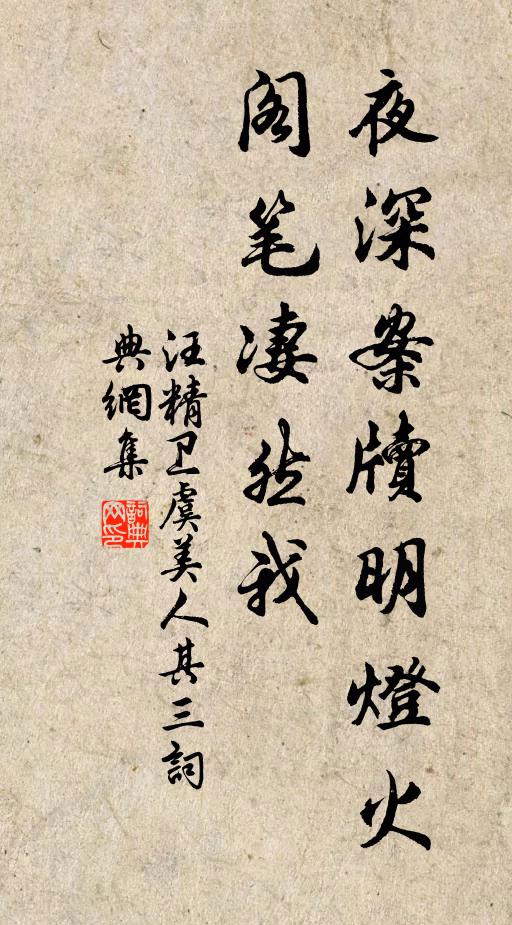 夜深案牘明燈火
阁笔凄然我
汪精卫虞美人其三詞
典網集
詞典
网印